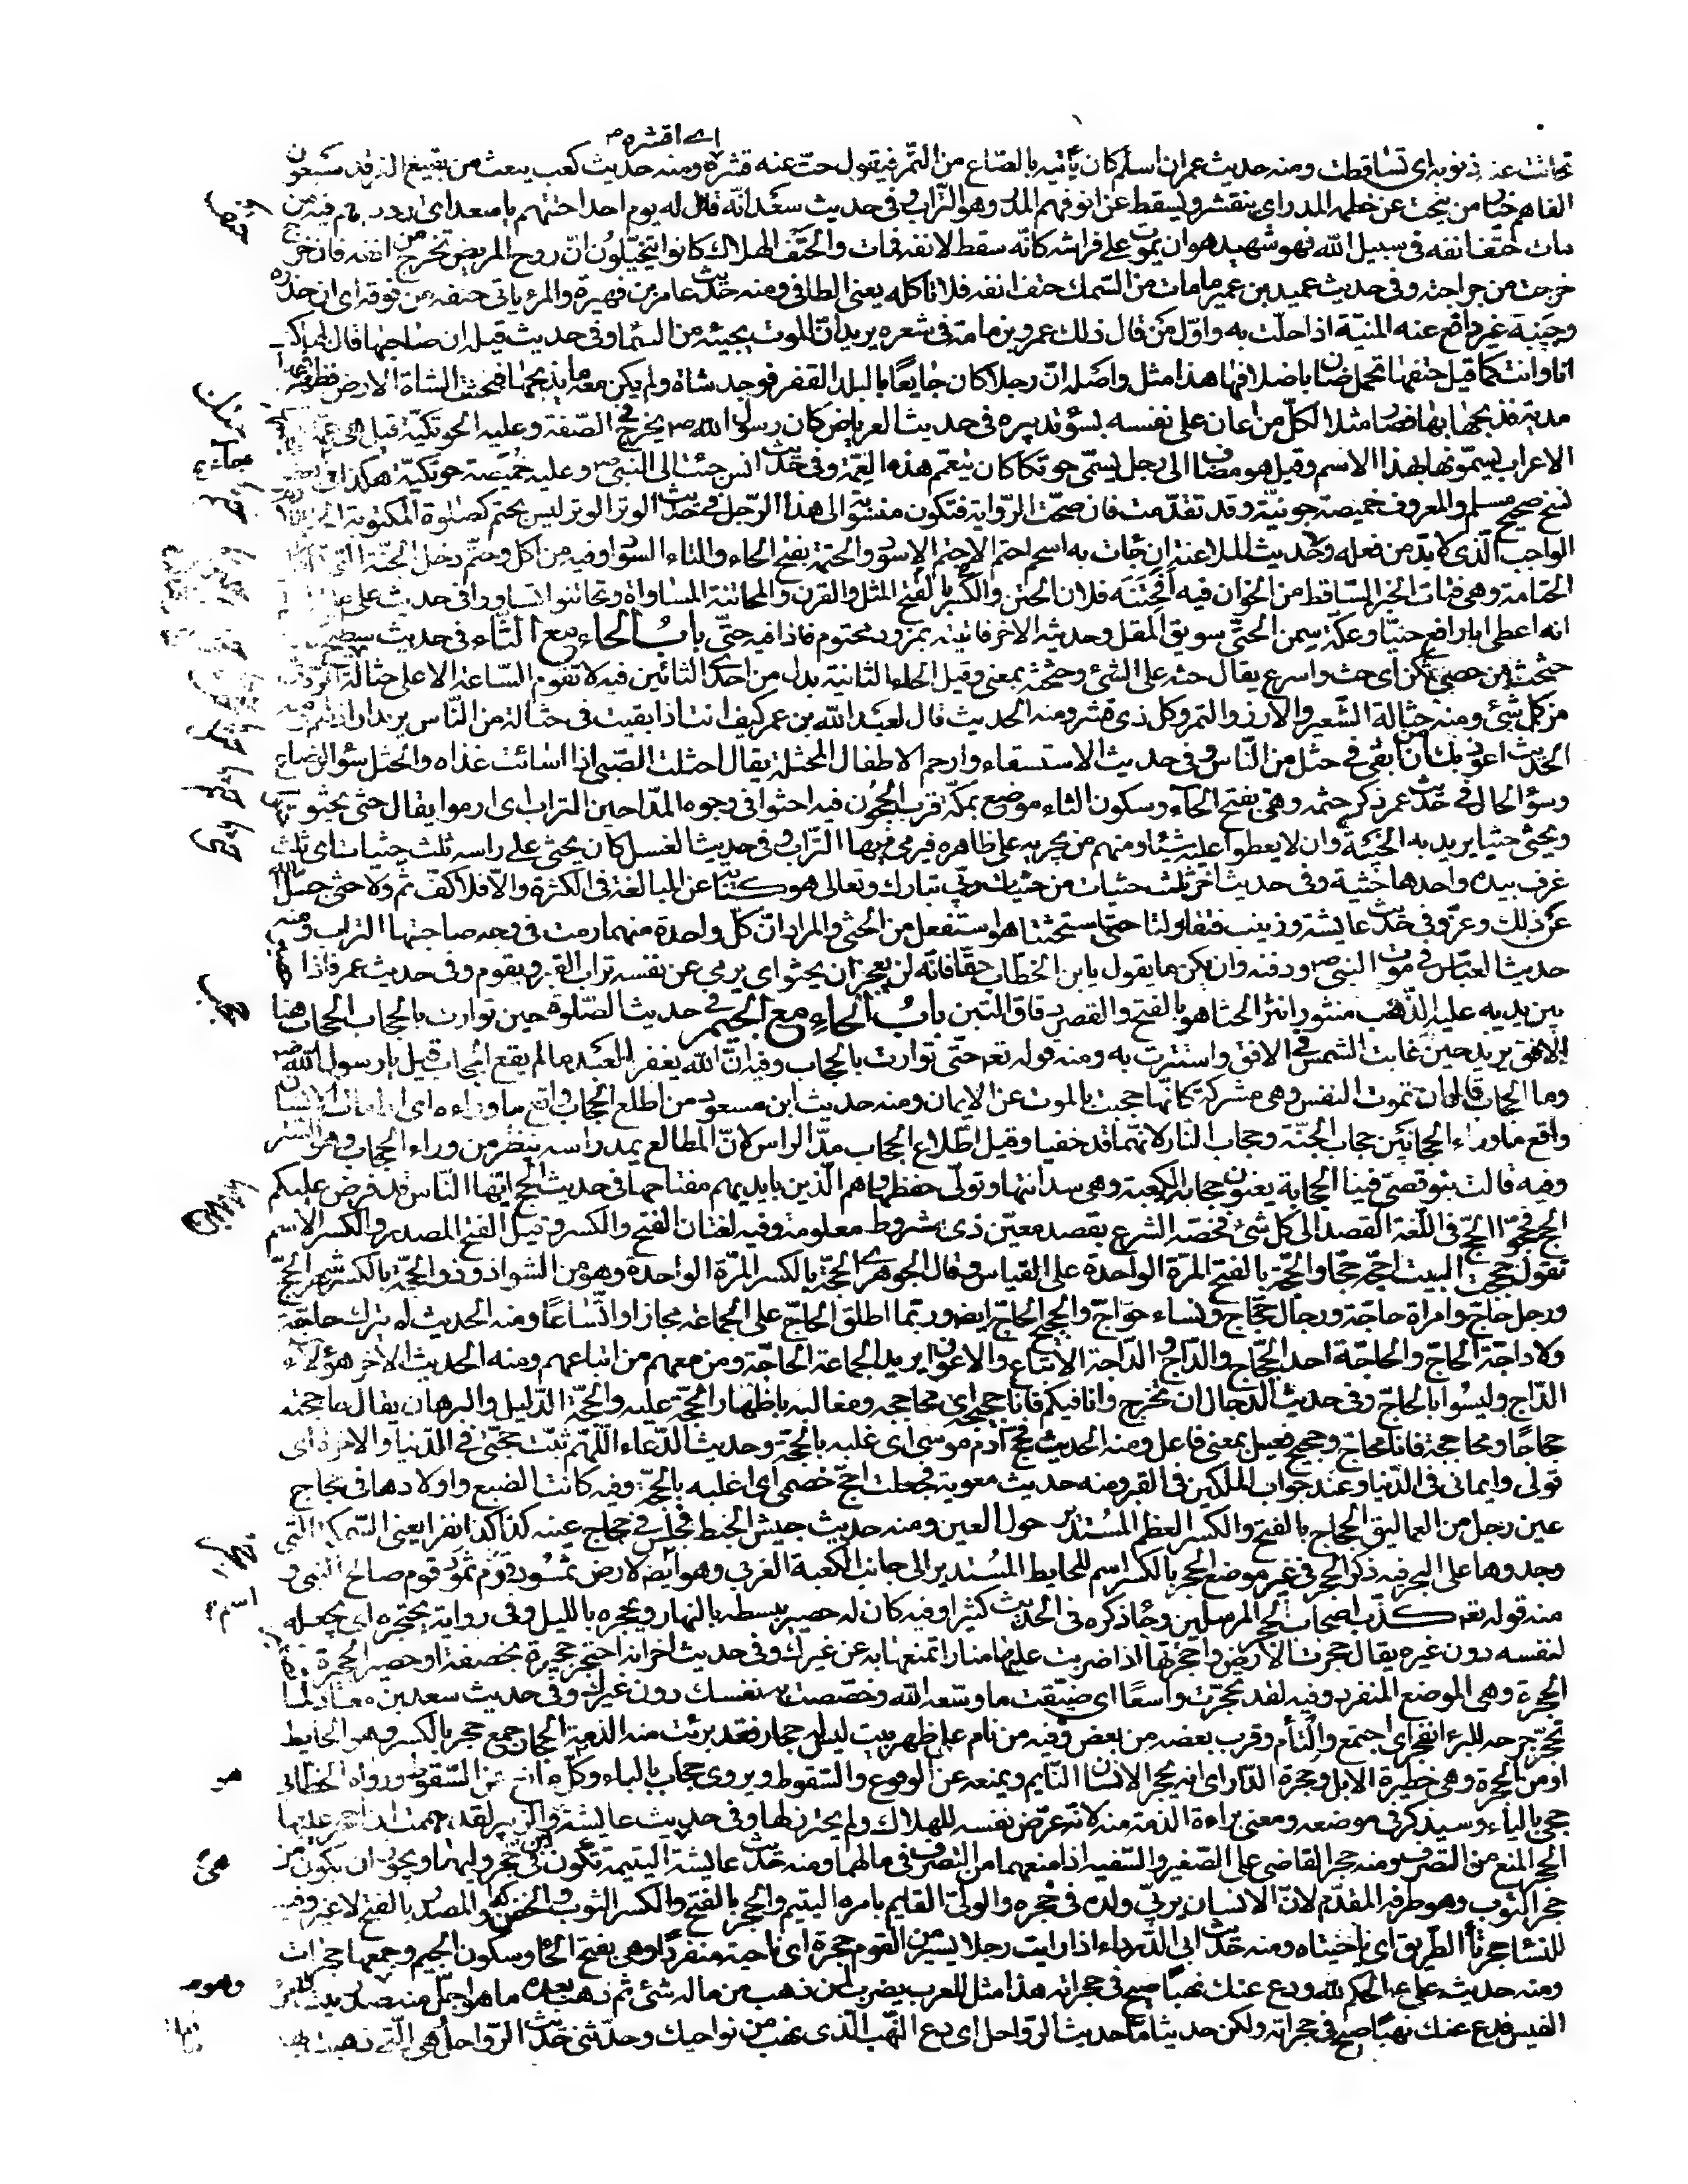 اى اقشره
تحاتت عنه ذنوبه اى تساقطت ومنه حديث عمر ان اسلم كان يأتيه بالصّاع من التمر فيقول حتّ عنه قشره ومنه حديث كعب يبعث من بقيع الغرقد سبعون
الفا هم خيار من ينحت عن خطمه المدر اى ينقشر ويسقط عن انوفهم المدر وهو التراب وفى حديث سعد انه قال له يوم احد احتتهم يا سعد اى ارددهم فيه من
مات حتف انفه فى سبيل الله فهو شهيد هو ان يموت على فراشه كانّه سقط لانفه فمات والحتف الهلاك كانوا يتخيّلون انّ روح المريض تخرج من انفه فان جرح
خرجت من جراحته وفى حديث عبيد بن عمير ما مات من السّمك حتف انفه فلا تاكله يعنى الطافى ومنه حديث عامر بن فهيرة والمرء ياتى حتفه من فوقه اى ان حذره
وجبنه غير دافع عنه المنيّة اذا حلّت به واوّل من قال ذلك عمرو بن مامة فى شعره يريد انّ الموت يجيئه من السّما وفى حديث قيلة ان صاحبها قال لها
انا وانت كما قيل حتفها تحمل ضان باضلافها هذا مثل واصله انّ رجلا كان جايعا بالبلد القفر فوجد شاة ولم يكن معه ما يذبحها فبحثت الشاة الارض فظهر
مدية فذبحها بها فصار مثلا لكلّ من اعان على نفسه بسؤ تدبيره فى حديث العرباض كان رسول الله ص يخرج فى الصّفة وعليه الحوتكيّة قيل هى عمة
الاعراب يسمّونها بهذا الاسم وقيل هو مضاف الى رجل يسمّى حوتكا كان يتعمّم هذه العمّة وفى حديث انس جئت الى النبى ص وعليه خميصة حوتكيّة هكذا
نسخ صحيح مسلم والمعروف خميصة جونيّة وقد تقدّمت فان صحّت الرّواية فتكون منسوبة الى هذا الرّجل فى حديث الوتر الوتر ليس بحتم كصلوة المكتوبة
الواجب الّذى لا بدّ من فعله وفى حديث الملاعنة ان جائت به اسحم احتم الاحتم الاسود والحتمة بفتح الحاء والتاء السواد وفيه من اكل وتحتّم دخل الجنّة
الحتامة وهى فتات الخبز السّاقط من الخوان فيه افحتنه فلان الحتن والكسر بالفتح المثل والقرن والمحاتنة المساواة وتحاتنوا تساووا فى حديث على
انه اعطى ابا رافع حتيّا وعكّة سمن الحتىّ سويق المقل وحديثه الاخر فاتيته بمزود مختوم فاذا فيه حتىّ باب الحاء مع الثّاء فى حديث سطيح
حثحث من حضنى ثكن اى حث واسرع يقال حثه على الشئ وحثحثه بمعنى وقيل الحاء الثانية بدل من احدى الثائين فيه لا تقوم السّاعة الا على حثالة
من كلّ شئ ومنه حثالة الشعير والارز والتمر وكل ذى قشر ومنه الحديث قال لعبد الله بن عمر كيف انت اذا بقيت فى حثالة من النّاس يريد
الحديث اعوذ بك من ان ابقى فى حثل من النّاس وفى حديث الاستسقاء وارحم الاطفال المحثلة يقال احثلت الصّبى اذا اسائت غذاه والحثل سؤ الرضاع
وسؤ الحال فى حديث عمر ذكر حثمه وهى بفتح الحاء وسكون الثاء موضع بمكّة قرب الحجون فيه احثوا فى وجوه المدّاحين التراب اى ارموا يقال حثى يحثو
ويحثى حثيا يريد به الخيبة وان لا يعطوا عليه شيئا ومنهم من يجريه على ظاهره فيرمى فيها التراب وفى حديث الغسل كان يحثى على راسه ثلث حثيات اى ثلث
غرف بيده واحدها حثية وفى حديث اخر ثلث حثيات من حثيات ربّى تبارك وتعالى هو كناية عن المبالغة فى الكثرة والّا فلا كفّ ثم ولا حثى جل الله
عن ذلك وعزّ وفى حديث عايشة وزينب فتقاولتا حتى استحثتا هو استفعل من الحثى والمراد انّ كلّ واحدة منهما رمت فى وجه صاحبتها التراب ومنه
حديث العبّاس فى موت النبى ص ودفنه وان يكن ما تقول يا ابن الخطّاب حقّا فانّه لن يعجز ان يحثو اى يرمى عن نفسه تراب القبر ويقوم وفى حديث عمر فاذا
بين يديه عليه الذّهب منثورا نثر الحثا هو بالفتح والقصر دقاق التبن باب الحاء مع الجيم فى حديث الصّلوة حين توارت بالحجاب الحجاب هنا
الافق يريد حين غابت الشمس فى الافق واستترت به ومنه قوله تعم حتّى توارت بالحجاب وفيه انّ الله يغفر للعبد ما لم يقع الحجاب قيل يا رسول الله ص
وما الحجاب قال ان تموت النفس وهى مشركة كانّها حجبت بالموت عن الايمان ومنه حديث ابن مسعود من اطلع الحجاب واقع ما وراءه اى اذا مات الانسان
واقع ما وراء الحجابين حجاب الجنّة وحجاب النّار لانّهما قد خفيا وقيل اطّلاع الحجاب مدّ الراس لانّ المطالع يمدّ راسه ينظر من وراء الحجاب وهو الستر
وفيه قالت بنو قصىّ فينا الحجابة يعنون حجابة الكعبة وهى سدانتها وتولّى حفظها وهم الّذين بايديهم مفتاحها فى حديث الحج ايّها النّاس قد فرض عليكم
الحج فحجّوا الحجّ فى اللّغة القصد الى كل شئ فخصّه الشرع بقصد معيّن ذى شروط معلومة وفيه لغتان الفتح والكسر وقيل الفتح المصدر والكسر الاسم
تقول حججت البيت احجّه حجّا والحجّة بالفتح المرّة الواحدة على القياس وقال الجوهرى الحجّة بالكسر المرّة الواحدة وهو من الشواذ وذو الحجّة بالكسر شهر الحجّ
ورجل حاجّ وامراة حاجّة ورجال حجّاج ونساء حواجّ والحجيج الحاجّ ايض وربّما اطلق الحاجّ على الجماعة مجازا واتّساعا ومنه الحديث لم يترك حاجّة
ولا داجّة الحاجّ والحاجّة احد الحجّاج والدّاج والدّاجة الاتباع والاعوان يريد الجماعة الحاجّة ومن معهم من اتباعهم ومنه الحديث الاخر هؤلاء
الدّاج وليسوا بالحاجّ وفى حديث الدّجال ان يخرج وانا فيكم فانا حجيجه اى محاججه ومغالبه باظهار الحجّة عليه والحجّة الدّليل والبرهان يقال حاججته
حجاجا ومحاججة فانا محاجّ وحجيج فعيل بمعنى فاعل ومنه الحديث فحجّ آدم موسى اى غلبه بالحجّة وحديث الدّعاء اللّهمّ ثبّت حجّتى فى الدّنيا والاخرة اى
قولى وايمانى فى الدّنيا وعند جواب الملكين فى القبر ومنه حديث معوية فجعلت احجّ خصمى اى اغلبه بالحجّة وفيه كانت الضبع واولادها فى حجاج
عين رجل من العماليق الحجاج بالفتح والكسر العظم المستدير حول العين ومنه حديث جيش الخبط فجلس فى حجاج عينه كذا كذا نفرا يعنى السّمكة التى
وجدوها على البحر فيه ذكر الحجر فى غير موضع الحجر بالكسر اسم للحايط المستدير الى جانب الكعبة الغربى وهو ايض لارض ثمود قوم صالح النبى و
اسم
منه قوله تعم كذّب اصحاب الحجر المرسلين وجاء ذكره فى الحديث كثيرا وفيه كان له حصير يبسطه بالنهار ويحجره بالليل وفى رواية يحتجره اى يجعله
لنفسه دون غيره يقال حجرت الارض واحتجرتها اذا ضربت عليها منارا تمنعها به عن غيرك وفى حديث اخر انه احتجر حجيرة بخصفة او حصير الحجيرة
الحجرة وهى الموضع المنفرد وفيه لقد تحجّرت واسعا اى ضيّقت ما وسّعه الله وخصّصت به نفسك دون غيرك وفى حديث سعد بن معاذ لما
تحجّر جرحه للبرء انفجر اى اجتمع والتأم وقرب بعضه من بعض وفيه من نام على ظهر بيت ليس له حجار فقد برئت منه الذمّة الحجار جمع حجر بالكسر وهو الحايط
هو
او من الحجرة وهى حظيرة الابل وحجرة الدّار اى انه يحجر الانسان النّايم ويمنعه عن الوقوع والسّقوط ويروى حجاب بالباء وكل مانع عن السّقوط ورواه الخطابى
حجى بالياء وسيذكر فى موضعه ومعنى براءة الذمّة منه لانّه عرّض نفسه للهلاك ولم يحترز لها وفى حديث عايشة وابن الزبير لقد هممت ان احجر عليها
هى
الحجر المنع من التصرف ومنه حجر القاضى على الصّغير والسّفيه اذا منعهما من التصرف فى مالهما ومنه حديث عايشة اليتيمة تكون فى حجر وليها ويجوز ان تكون من
حجر الثوب وهو طرفه المقدّم لانّ الانسان يربّى ولده فى حجره والولى القايم بامره اليتيم والحجر بالفتح والكسر الثوب والحضن والمصدر بالفتح لا غير وفيه
للنّسا حجرتا الطّريق اى ناحيتاه ومنه حديث ابى الدّرداء اذا رايت رجلا يسير من القوم حجرة اى ناحية منفردا وهى بفتح الحا وسكون الجيم وجمعها حجرات
وهو
ومنه حديث على ع الحكم لله ودع عنك نهبا صيح فى حجراته هذا مثل للعرب يضرب لمن ذهب من ماله شئ ثم ذهب بعده ما هو اجلّ منه
القيس فدع عنك نهبا صيح فى حجراته ولكن حديثا ما حديث الرّواحل اى دع النّهب الّذى نهب من نواحيك وحدّثنى حديث الرّواحل وهى الّتى ذهبت بها